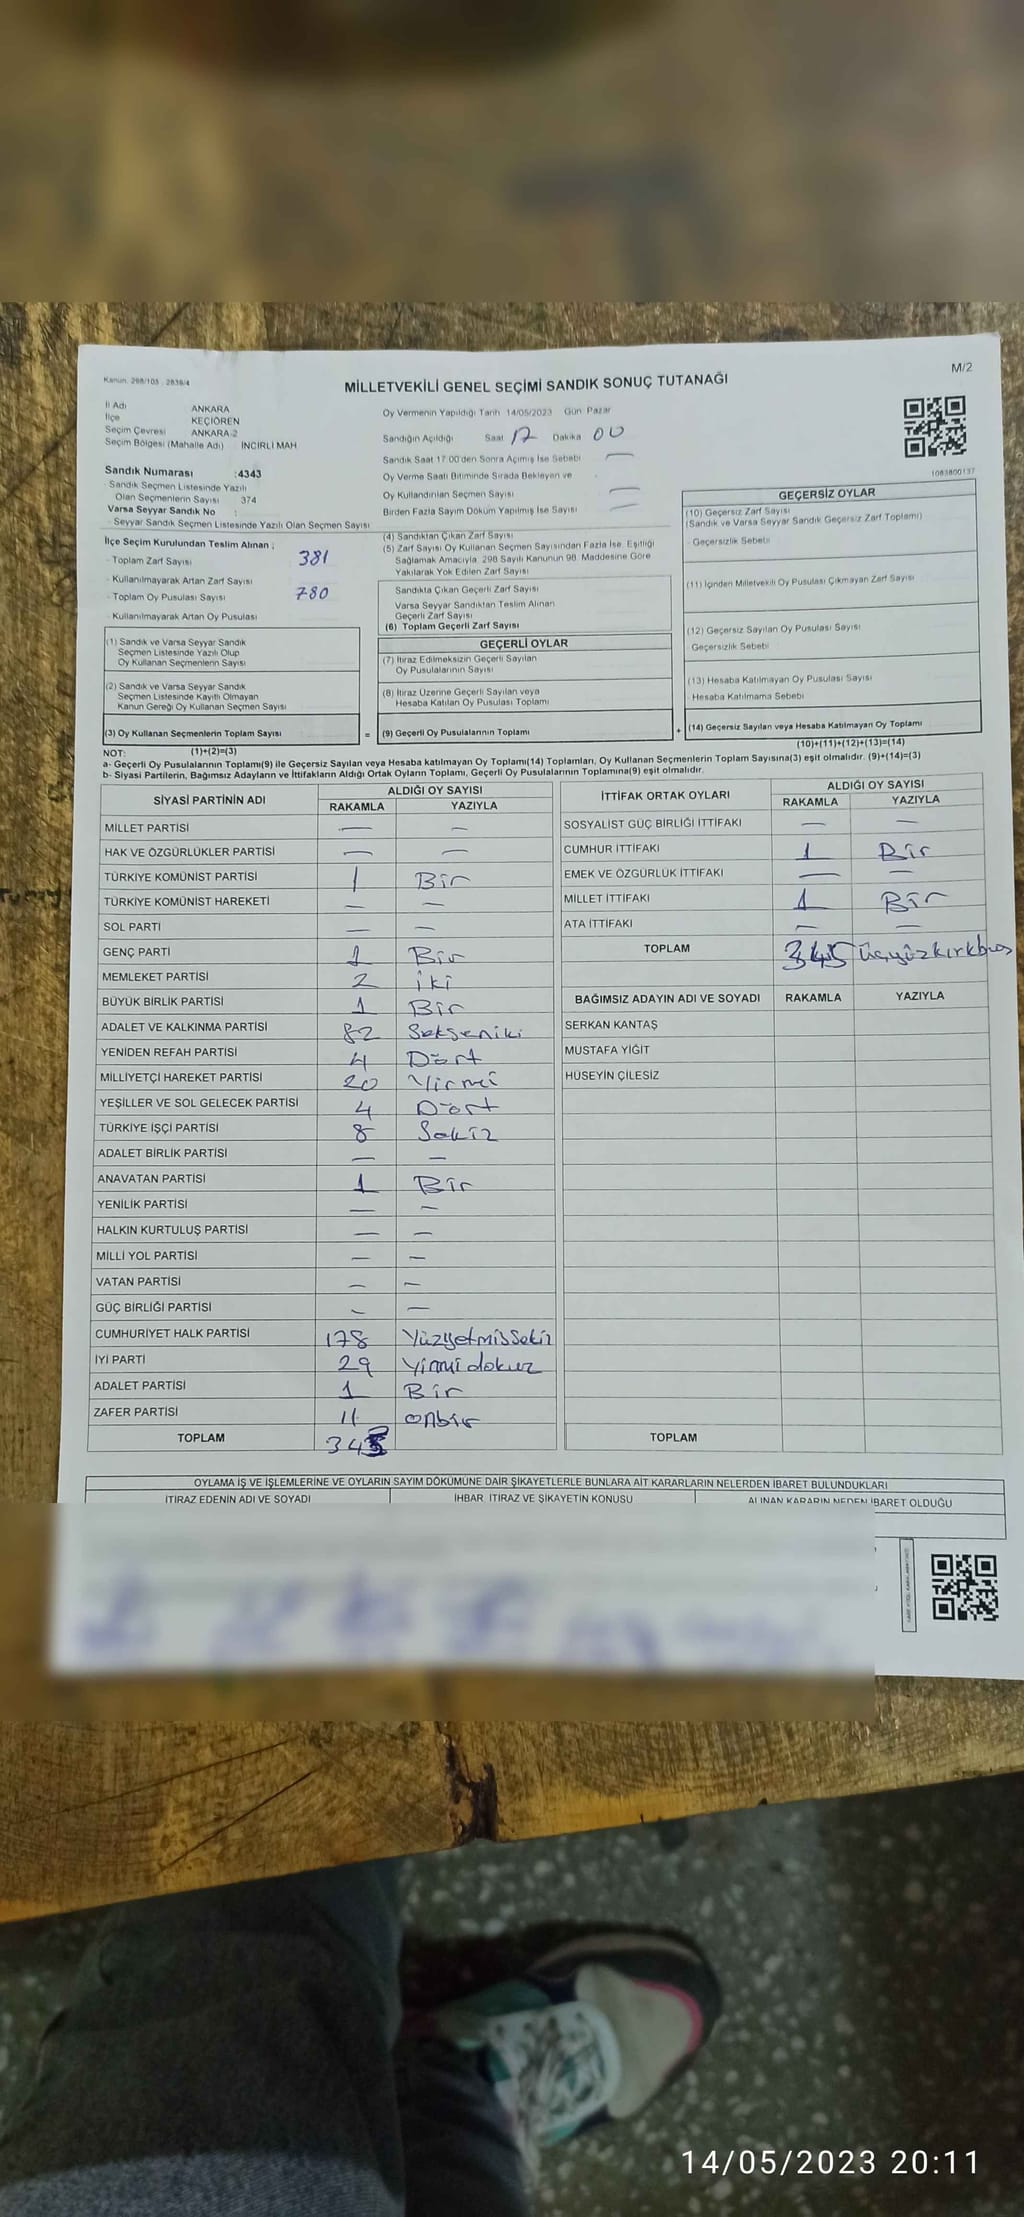 Kanun: 298/105 - 2839/4
M/2
MİLLETVEKİLİ GENEL SEÇİMİ SANDIK SONUÇ TUTANAĞI
İl Adı ANKARA
İlçe KEÇİÖREN
Seçim Çevresi ANKARA-2
Seçim Bölgesi (Mahalle Adı) İNCİRLİ MAH
Sandık Numarası :4343
- Sandık Seçmen Listesinde Yazılı
Olan Seçmenlerin Sayısı 374
Varsa Seyyar Sandık No :
- Seyyar Sandık Seçmen Listesinde Yazılı Olan Seçmen Sayısı
Oy Vermenin Yapıldığı Tarih 14/05/2023 Gün Pazar
Sandığın Açıldığı Saat 17 Dakika 00
Sandık Saat 17:00'den Sonra Açılmış İse Sebebi —
Oy Verme Saati Bitiminde Sırada Bekleyen ve
Oy Kullandırılan Seçmen Sayısı —
Birden Fazla Sayım Döküm Yapılmış İse Sayısı —
1083800137
İlçe Seçim Kurulundan Teslim Alınan ;
- Toplam Zarf Sayısı 381
- Kullanılmayarak Artan Zarf Sayısı
- Toplam Oy Pusulası Sayısı 780
- Kullanılmayarak Artan Oy Pusulası
(1) Sandık ve Varsa Seyyar Sandık
Seçmen Listesinde Yazılı Olup
Oy Kullanan Seçmenlerin Sayısı
(2) Sandık ve Varsa Seyyar Sandık
Seçmen Listesinde Kayıtlı Olmayan
Kanun Gereği Oy Kullanan Seçmen Sayısı
(3) Oy Kullanan Seçmenlerin Toplam Sayısı =
(1)+(2)=(3)
(4) Sandıktan Çıkan Zarf Sayısı
(5) Zarf Sayısı Oy Kullanan Seçmen Sayısından Fazla İse, Eşitliği
Sağlamak Amacıyla, 298 Sayılı Kanunun 98. Maddesine Göre
Yakılarak Yok Edilen Zarf Sayısı
Sandıkta Çıkan Geçerli Zarf Sayısı
Varsa Seyyar Sandıktan Teslim Alınan
Geçerli Zarf Sayısı
(6) Toplam Geçerli Zarf Sayısı
GEÇERLİ OYLAR
(7) İtiraz Edilmeksizin Geçerli Sayılan
Oy Pusulalarının Sayısı
(8) İtiraz Üzerine Geçerli Sayılan veya
Hesaba Katılan Oy Pusulası Toplamı
(9) Geçerli Oy Pusulalarının Toplamı +
GEÇERSİZ OYLAR
(10) Geçersiz Zarf Sayısı
(Sandık ve Varsa Seyyar Sandık Geçersiz Zarf Toplamı)
- Geçersizlik Sebebi
(11) İçinden Milletvekili Oy Pusulası Çıkmayan Zarf Sayısı
(12) Geçersiz Sayılan Oy Pusulası Sayısı
Geçersizlik Sebebi
(13) Hesaba Katılmayan Oy Pusulası Sayısı
- Hesaba Katılmama Sebebi
(14) Geçersiz Sayılan veya Hesaba Katılmayan Oy Toplamı
(10)+(11)+(12)+(13)=(14)
NOT:
a- Geçerli Oy Pusulalarının Toplamı(9) ile Geçersiz Sayılan veya Hesaba katılmayan Oy Toplamı(14) Toplamları, Oy Kullanan Seçmenlerin Toplam Sayısına(3) eşit olmalıdır. (9)+(14)=(3)
b- Siyasi Partilerin, Bağımsız Adayların ve İttifakların Aldığı Ortak Oyların Toplamı, Geçerli Oy Pusulalarının Toplamına(9) eşit olmalıdır.
SİYASİ PARTİNİN ADI ALDIĞI OY SAYISI
RAKAMLA YAZIYLA
MİLLET PARTİSİ — —
HAK VE ÖZGÜRLÜKLER PARTİSİ — —
TÜRKİYE KOMÜNİST PARTİSİ 1 Bir
TÜRKİYE KOMÜNİST HAREKETİ — —
SOL PARTİ — —
GENÇ PARTİ 1 Bir
MEMLEKET PARTİSİ 2 iki
BÜYÜK BİRLİK PARTİSİ 1 Bir
ADALET VE KALKINMA PARTİSİ 82 Sekseniki
YENİDEN REFAH PARTİSİ 4 Dört
MİLLİYETÇİ HAREKET PARTİSİ 20 Yirmi
YEŞİLLER VE SOL GELECEK PARTİSİ 4 Dört
TÜRKİYE İŞÇİ PARTİSİ 8 Sekiz
ADALET BİRLİK PARTİSİ — —
ANAVATAN PARTİSİ 1 Bir
YENİLİK PARTİSİ — —
HALKIN KURTULUŞ PARTİSİ — —
MİLLİ YOL PARTİSİ — —
VATAN PARTİSİ — —
GÜÇ BİRLİĞİ PARTİSİ — —
CUMHURİYET HALK PARTİSİ 178 YüzyetmişSekiz
İYİ PARTİ 29 Yirmidokuz
ADALET PARTİSİ 1 Bir
ZAFER PARTİSİ 11 onbir
TOPLAM 343
İTTİFAK ORTAK OYLARI ALDIĞI OY SAYISI
RAKAMLA YAZIYLA
SOSYALİST GÜÇ BİRLİĞİ İTTİFAKI — —
CUMHUR İTTİFAKI 1 Bir
EMEK VE ÖZGÜRLÜK İTTİFAKI — —
MİLLET İTTİFAKI 1 Bir
ATA İTTİFAKI — —
TOPLAM 345 üçyüzkırkbeş
BAĞIMSIZ ADAYIN ADI VE SOYADI RAKAMLA YAZIYLA
SERKAN KANTAŞ
MUSTAFA YİĞİT
HÜSEYİN ÇİLESİZ
TOPLAM
OYLAMA İŞ VE İŞLEMLERİNE VE OYLARIN SAYIM DÖKÜMÜNE DAİR ŞİKAYETLERLE BUNLARA AİT KARARLARIN NELERDEN İBARET BULUNDUKLARI
İTİRAZ EDENİN ADI VE SOYADI İHBAR, İTİRAZ VE ŞİKAYETİN KONUSU ALINAN KARARIN NEDEN İBARET OLDUĞU
14/05/2023 20:11